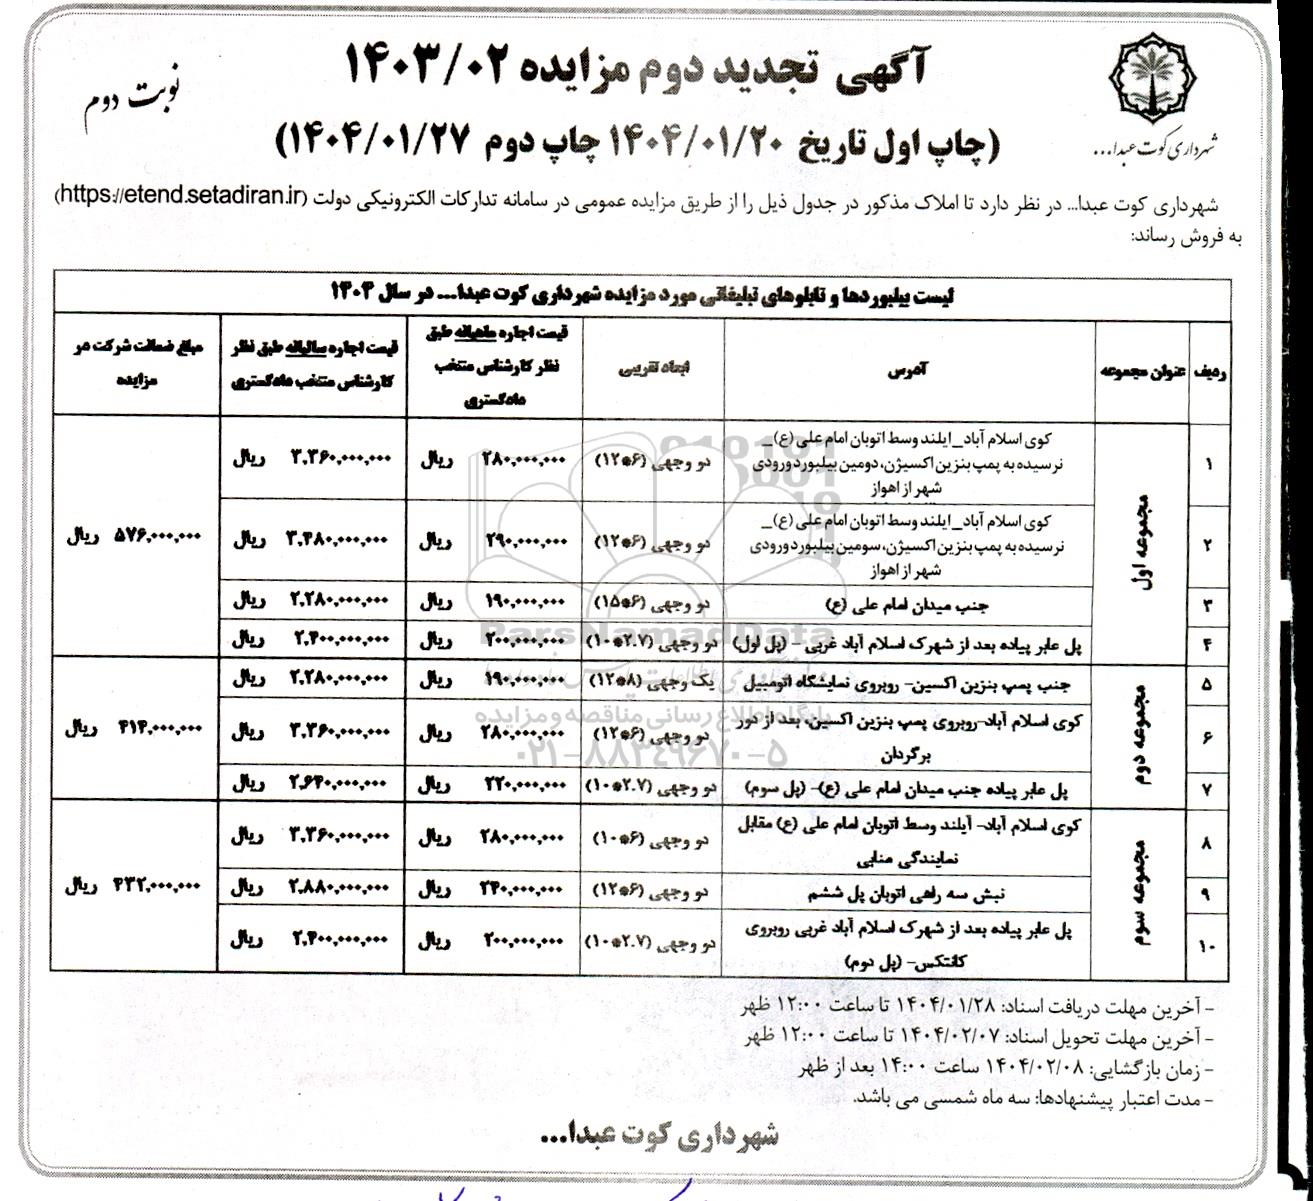 آگهی تجدید دوم مزایده ۱۴۰۳/۰۲
نوبت دوم
(چاپ اول تاریخ ۱۴۰۴/۰۱/۲۰ چاپ دوم ۱۴۰۴/۰۱/۲۷)
شهرداری کوت عبدا...
شهرداری کوت عبدا... در نظر دارد تا املاک مذکور در جدول ذیل را از طریق مزایده عمومی در سامانه تدارکات الکترونیکی دولت (https://etend.setadiran.ir)
به فروش رساند:
لیست بیلبوردها و تابلوهای تبلیغاتی مورد مزایده شهرداری کوت عبدا... در سال ۱۴۰۳
ردیف عنوان مجموعه آدرس ابعاد تقریبی قیمت اجاره ماهیانه طبق نظر کارشناس منتخب دادگستری قیمت اجاره سالیانه طبق نظر کارشناس منتخب دادگستری مبلغ ضمانت شرکت در مزایده
مجموعه اول
۱ کوی اسلام آباد_ایلند وسط اتوبان امام علی (ع)_
نرسیده به پمپ بنزین اکسیژن، دومین بیلبورد ورودی
شهر از اهواز
دو وجهی (۶*۱۲) ۲۸۰,۰۰۰,۰۰۰ ریال ۳.۳۶۰,۰۰۰,۰۰۰ ریال
۲ کوی اسلام آباد_ایلند وسط اتوبان امام علی (ع)_
نرسیده به پمپ بنزین اکسیژن، سومین بیلبورد ورودی
شهر از اهواز
دو وجهی (۶*۱۲) ۲۹۰,۰۰۰,۰۰۰ ریال ۳.۴۸۰,۰۰۰,۰۰۰ ریال
۵۷۶,۰۰۰,۰۰۰ ریال
۳ جنب میدان امام علی (ع) دو وجهی (۶*۱۵) ۱۹۰,۰۰۰,۰۰۰ ریال ۲.۲۸۰,۰۰۰,۰۰۰ ریال
۴ پل عابر پیاده بعد از شهرک اسلام آباد غربی - (پل اول) دو وجهی (۲.۷*۱۰) ۲۰۰,۰۰۰,۰۰۰ ریال ۲.۴۰۰,۰۰۰,۰۰۰ ریال
مجموعه دوم
۵ جنب پمپ بنزین اکسین- روبروی نمایشگاه اتومبیل یک وجهی (۸*۱۲) ۱۹۰,۰۰۰,۰۰۰ ریال ۲.۲۸۰,۰۰۰,۰۰۰ ریال
۶ کوی اسلام آباد-روبروی پمپ بنزین اکسین، بعد از دور
برگردان
دو وجهی (۶*۱۲) ۲۸۰,۰۰۰,۰۰۰ ریال ۳.۳۶۰,۰۰۰,۰۰۰ ریال
۴۱۴,۰۰۰,۰۰۰ ریال
۷ پل عابر پیاده جنب میدان امام علی (ع)- (پل سوم) دو وجهی (۲.۷*۱۰) ۲۲۰,۰۰۰,۰۰۰ ریال ۲.۶۴۰,۰۰۰,۰۰۰ ریال
مجموعه سوم
۸ کوی اسلام آباد- آیلند وسط اتوبان امام علی (ع) مقابل
نمایندگی منابی
دو وجهی (۶*۱۰) ۲۸۰,۰۰۰,۰۰۰ ریال ۳.۳۶۰,۰۰۰,۰۰۰ ریال
۹ نبش سه راهی اتوبان پل ششم دو وجهی (۶*۱۲) ۲۴۰,۰۰۰,۰۰۰ ریال ۲.۸۸۰,۰۰۰,۰۰۰ ریال
۴۳۲,۰۰۰,۰۰۰ ریال
۱۰ پل عابر پیاده بعد از شهرک اسلام آباد غربی روبروی
کانتکس- (پل دوم)
دو وجهی (۲.۷*۱۰) ۲۰۰,۰۰۰,۰۰۰ ریال ۲.۴۰۰,۰۰۰,۰۰۰ ریال
ParsNamadData
پایگاه اطلاع رسانی مناقصه و مزایده
۰۲۱-۸۸۳۴۹۶۷۰-۵
- آخرین مهلت دریافت اسناد: ۱۴۰۴/۰۱/۲۸ تا ساعت ۱۲:۰۰ ظهر
- آخرین مهلت تحویل اسناد: ۱۴۰۴/۰۲/۰۷ تا ساعت ۱۲:۰۰ ظهر
- زمان بازگشایی: ۱۴۰۴/۰۲/۰۸ ساعت ۱۴:۰۰ بعد از ظهر
- مدت اعتبار پیشنهادها: سه ماه شمسی می باشد.
شهرداری کوت عبدا...